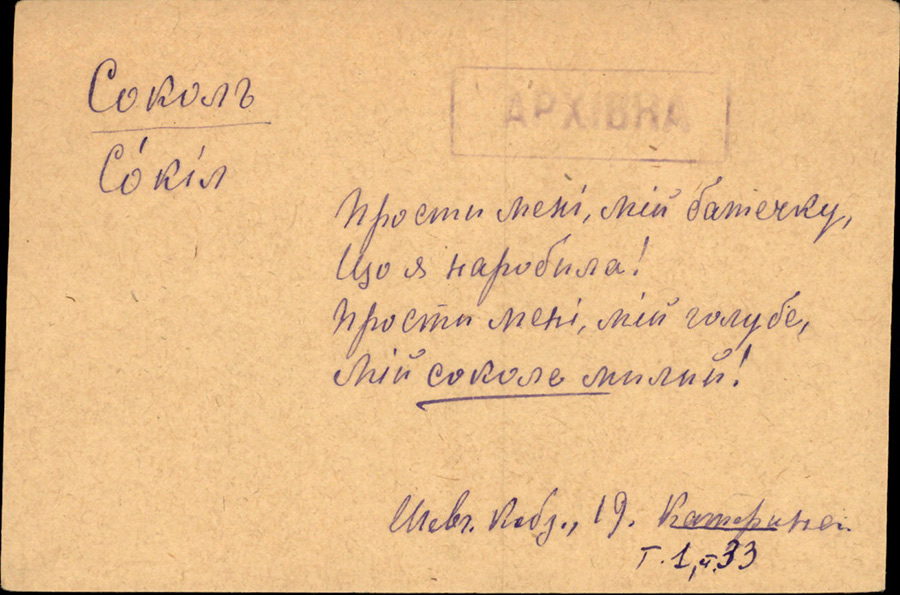 Соколъ
Со́кіл
АРХІВНА
Прости мені, мій батечку,
Що я наробила!
Прости мені, мій голубе,
Мій соколе милий!
Шевч. Кобз., 19. Катерина.
Т. 1, 33